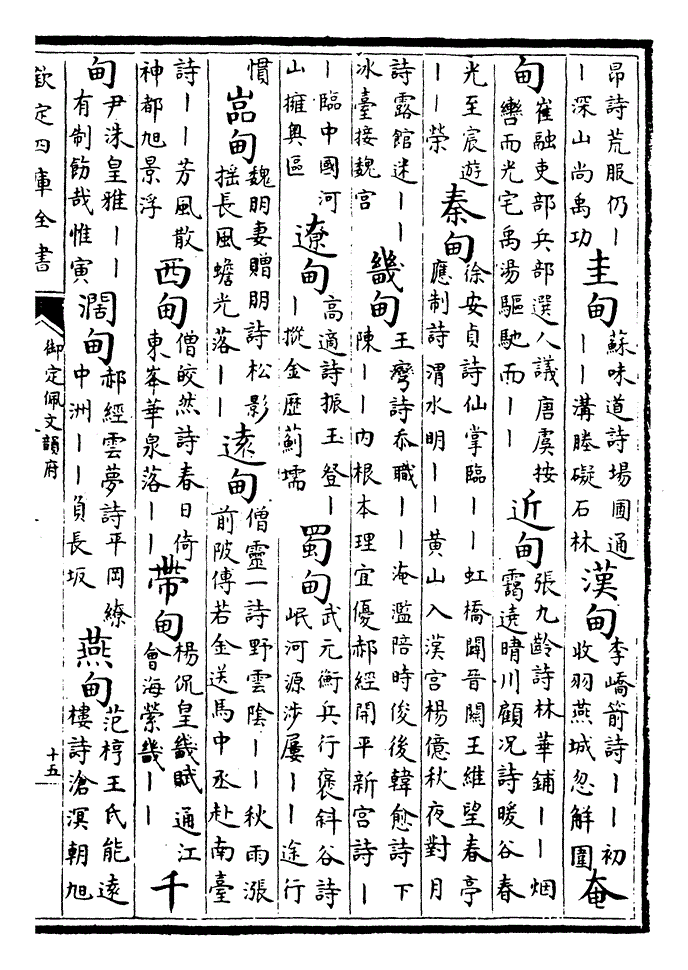 昂詩荒服仍丨
丨深山尚禹功
圭甸
蘇味道詩場圃通
丨丨溝塍礙石林
漢甸
李嶠箭詩丨丨初
收羽燕城忽解圍
奄
甸
崔融吏部兵部選人議唐虞按
轡而光宅禹湯驅馳而丨丨
近甸
張九齡詩林華鋪丨丨烟
靄遶晴川顧况詩暖谷春
光至宸遊
丨丨榮
秦甸
徐安貞詩仙掌臨丨丨虹橋闢晉關王維望春亭
應制詩渭水明丨丨黄山入漢宫楊億秋夜對月
詩露館迷丨丨
冰臺接魏宫
畿甸
王灣詩忝職丨丨淹濫陪時俊後韓愈詩下
陳丨丨内根本理宜優郝經開平新宫詩丨
丨臨中國河
山擁奥區
遼甸
高適詩振玉登丨
丨摐金歴薊壖
蜀甸
武元衡兵行褒斜谷詩
岷河源涉屢丨丨途行
慣
嵓甸
魏朋妻贈朋詩松影
摇長風蟾光落丨丨
遠甸
僧靈一詩野雲陰丨丨秋雨漲
前陂傅若金送馬中丞赴南臺
詩丨丨芳風散
神都旭景浮
西甸
僧皎然詩春日倚
東峯華泉落丨丨
帶甸
楊侃皇畿賦通江
會海縈畿丨丨
千
甸
尹洙皇雅丨丨
有制飭哉惟寅
濶甸
郝經雲夢詩平岡繚
中洲丨丨負長坂
燕甸
范梈王氏能遠
樓詩滄溟朝旭
欽定四庫全書
御定佩文韻府
十五